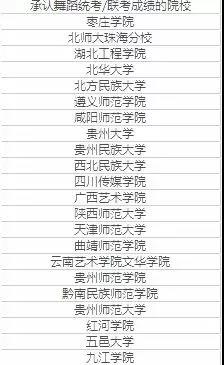 承认舞蹈统考/联考成绩的院校
枣庄学院
北师大珠海分校
湖北工程学院
北华大学
北方民族大学
遵义师范学院
咸阳师范学院
贵州大学
贵州民族大学
西北民族大学
四川传媒学院
广西艺术学院
陕西师范大学
天津师范大学
曲靖师范学院
云南艺术学院文华学院
贵州师范学院
黔南民族师范学院
贵州师范大学
红河学院
五邑大学
九江学院